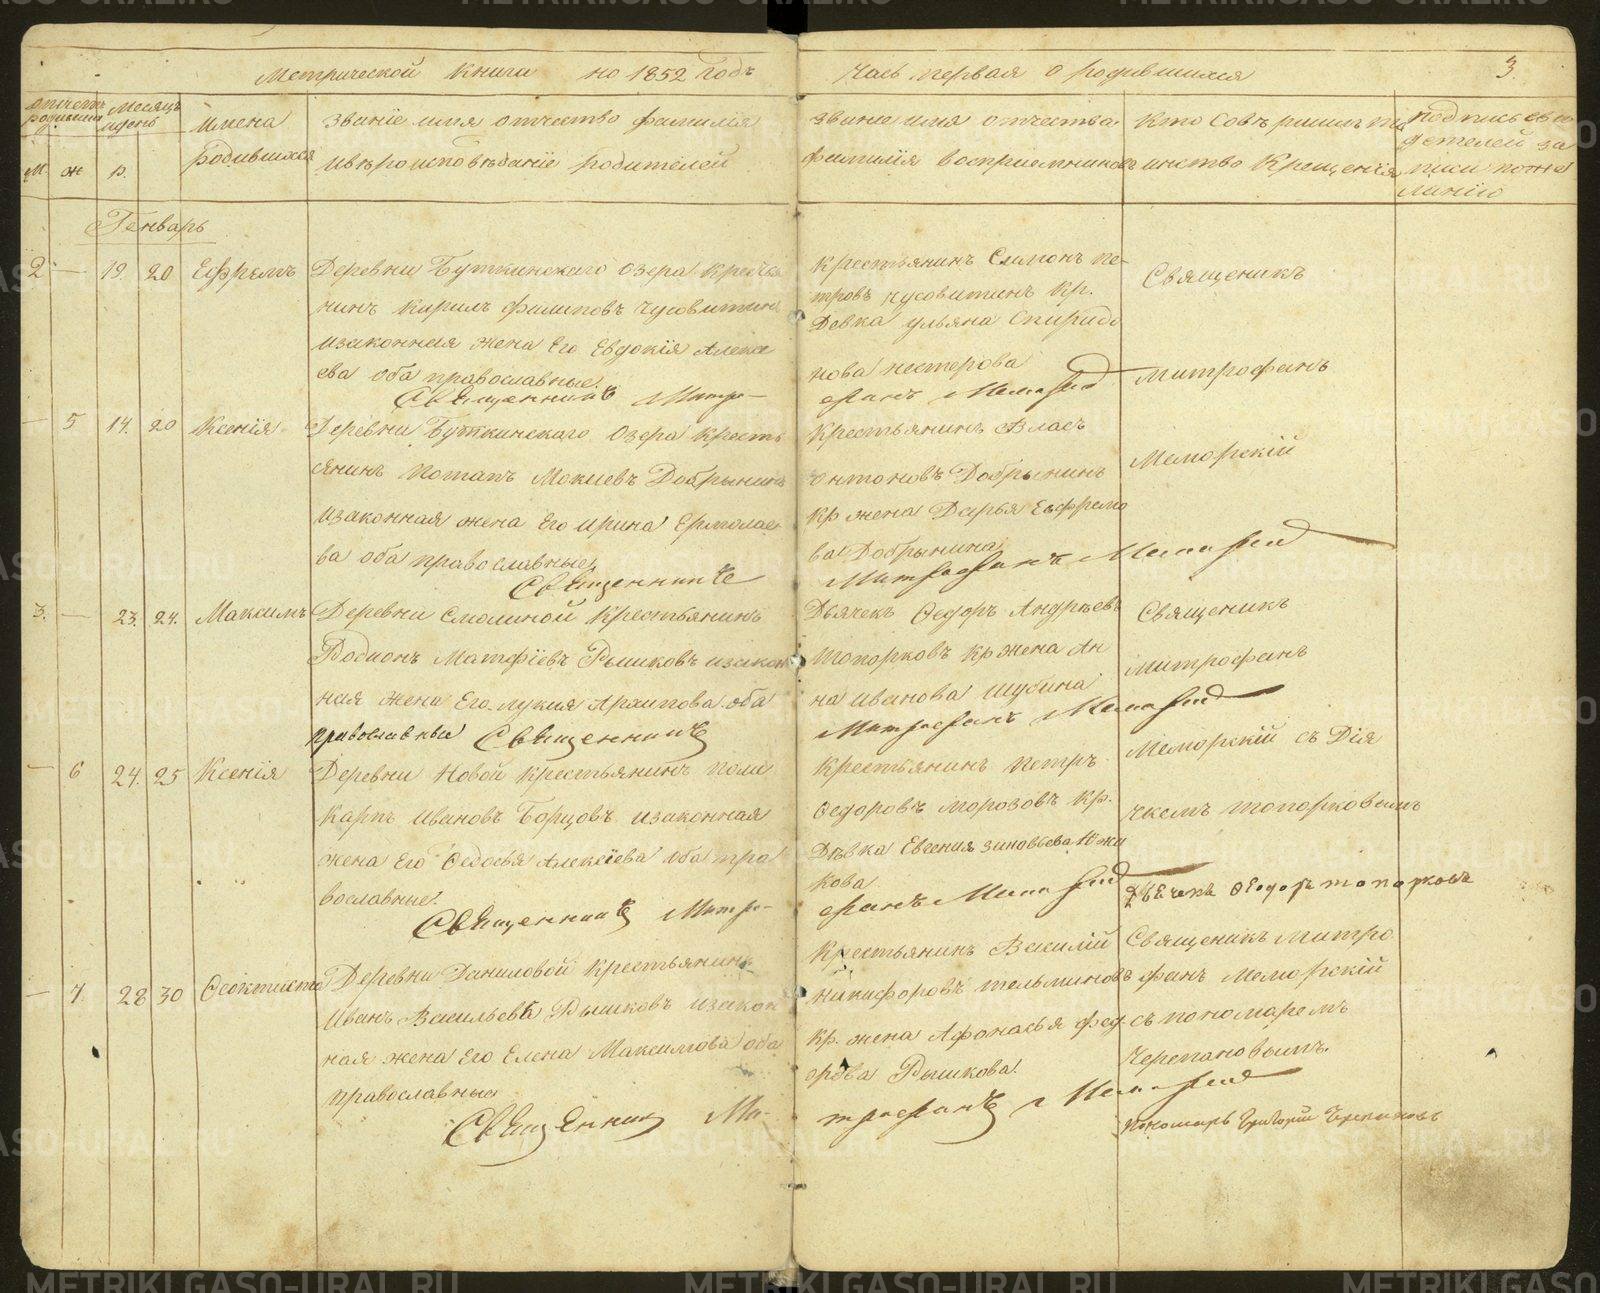 Метрической книги на 1852 годъ
Часть первая о родившихся
3.
Месяцъ
и день
Имена
родившихся
Званіе имя отчество фамилія
и вѣроисповѣданіе родителей
М. ж р.
Званіе имя отчества
фамилія воспріемниковъ
Кто совѣршилъ та
инство Крещенія
подпись сви
детелей за
писи поже
ланію
Генварь
2 — 19. 20 Ефремъ
Деревни Буткинскаго Озера крестья
нинъ Кирилъ Филиповъ Чусовитинъ
изаконная жена Его Евдокія Алексе
ева оба православные.
Священникъ Митро-
Крестьянинъ Симонъ Пе-
тровъ Чусовитинъ Кр.
Девка ульяна Спиридо
нова нестерова
фанъ Меморскій
Священикъ
Митрофанъ
— 5 14. 20 Ксенія
Деревни Буткинскаго Озера Кресть
янинъ Потапъ Мокиевъ Добрынинъ
изаконная жена Его Ирина Ермолае
ва оба православные.
Священникъ
Крестьянинъ Власъ
антоновъ Добрынинъ
Кр жена Дарья Ефремо
ва Добрынина
Митрофанъ Меморскій
Меморскій
3. — 23. 24. Максимъ
Деревни Смолиной Крестьянинъ
Родионъ Матфіевъ Рышковъ изакон
ная жена Его лукия Архипова оба
православные Священникъ
Дьячекъ Федоръ Андрѣевъ
Топорковъ Кр жена Ан
на Иванова Шубина
Митрофанъ Меморскій
Священикъ
Митрофанъ
Меморскій съ Дія
— 6 24. 25 Ксенія
Деревни Новой Крестьянинъ Поли
карпъ Ивановъ Борцовъ изаконная
жена Его Федосья Алексіева оба пра
вославные.
Священникъ Митро-
Крестьянинъ Петръ
Федоровъ Морозовъ Кр.
Дѣвка Евгения зиновьева Южа
кова
фанъ Меморскій
чкомъ Топорковымъ
Дьячекъ Феодоръ топорковъ
— 7. 28 30 Феоктиста
Деревни Даниловой Крестьянинъ
Иванъ Васильевъ Рышковъ изакон
ная жена Его Елена Максимова оба
православные
Священникъ Ми-
Крестьянинъ Василій
никифоровъ тельминовъ
Кр. жена Афонасья Фед
орова Рышкова.
трофанъ Меморскій
Священикъ Митро
фанъ Меморскій
съ пономаремъ
Черепановымъ.
Пономарь Григорій Черепановъ
METRIKI.GASO-URAL.RU